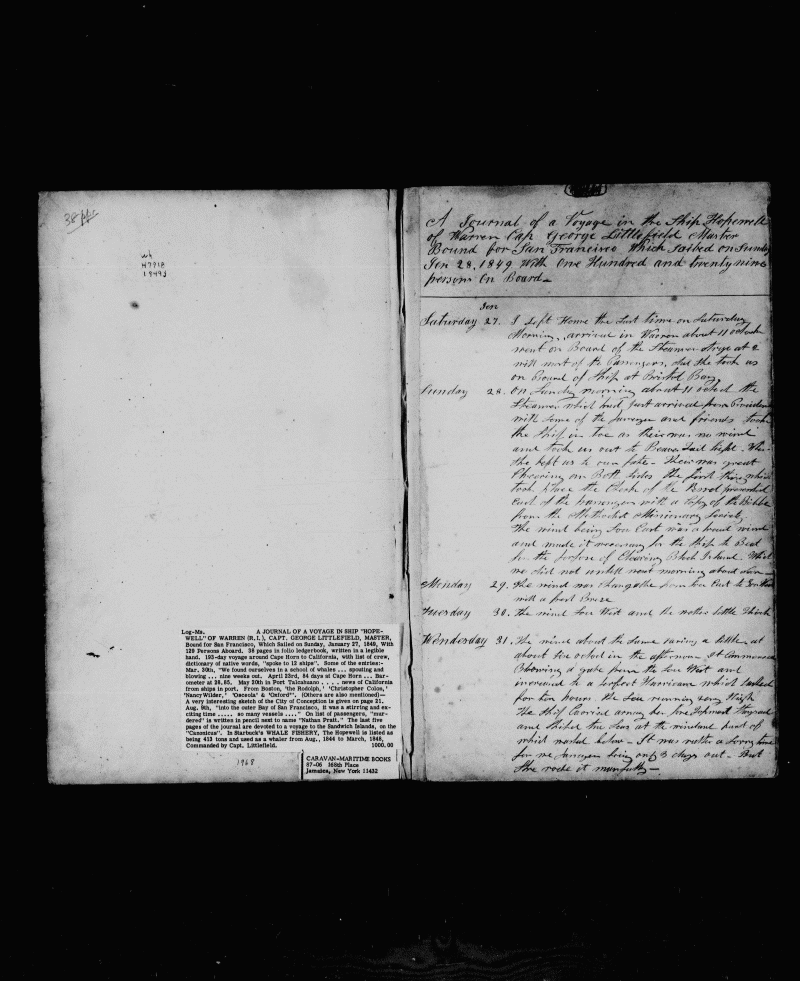 38 pps
wh
H791B
1849J
Log-Ms. A JOURNAL OF A VOYAGE IN SHIP "HOPE-
WELL" OF WARREN (R.I.), CAPT. GEORGE LITTLEFIELD, MASTER,
Bound for San Francisco, Which Sailed on Sunday, January 27, 1849, With
129 Persons Aboard. 38 pages in folio ledgerbook, written in a legible
hand. 193-day voyage around Cape Horn to California, with list of crew,
dictionary of native words, "spoke to 12 ships". Some of the entries:-
Mar. 30th, "We found ourselves in a school of whales ... spouting and
blowing ... nine weeks out. April 23rd, 84 days at Cape Horn ... Bar-
ometer at 28.85. May 20th in Port Talcahuano . . . . news of California
from ships in port. From Boston, 'the Rodolph,' 'Christopher Colos,'
'Nancy Wilder,' 'Osceola' & 'Oxford'". (Others are also mentioned)—
A very interesting sketch of the City of Conception is given on page 21.
Aug. 9th, "into the outer Bay of San Francisco, it was a stirring and ex-
citing time ..... so many vessels ...." On list of passengers, "mur-
dered" is written in pencil next to name "Nathan Pratt." The last five
pages of the journal are devoted to a voyage to the Sandwich Islands, on the
"Canonicus". In Starbuck's WHALE FISHERY, The Hopewell is listed as
being 413 tons and used as a whaler from Aug., 1844 to March, 1848,
Commanded by Capt. Littlefield. 1000.00
1968
CARAVAN-MARITIME BOOKS
87-06 168th Place
Jamaica, New York 11432
A Journal of a Voyage in the Ship Hopewell
of Warren Cap George Littlefield Master
Bound for San Francisco Which Sailed on Sunday
Jan 28, 1849 With One Hundred and twenty nine
persons On Board
Jan
Saturday 27. I left Home the last time on Saturday
Morning, arrived in Warren about 11 oclock
went on Board of the Steamer at 2
with most of the Passengers, she took us
on Board of Ship at Bristol Bay
Sunday 28. On Sunday morning about 11 oclock the
Steamer which had just arrived from
with some of the and friends took
the Ship in Toe as their was no wind
and took us out to Beaver Tail light. When
she left us to our fate. Their was great
Cheering on Both sides the first thing which
took place the Clerk of the presented
each of the passengers with a Copy of the Bible
from the Methodist Missionary Society
The wind being Sou East was a head wind
and made it necessary for the Ship to Beat
for the purpose of Clearing Block Island. Which
we did not untill next morning about
Monday 29. The wind was changable from Sou East to
with a fresh Breeze
Tuesday 30. The wind Sou West and the weather little Thick
Wendesday 31. The wind about the same raining a little at
about two oclock in the afternoon. It Commenced
Blowing a gale from the Sou West and
increased to a perfect Hurricane which lasted
for ten hours. the Sea running very High
The Ship Carried away her fore Topmast Staysail
and Shiped two Seas at the windward part of
which washed below. It was rather a Sorry time
for we being only 3 days out. But
she rode it manfully